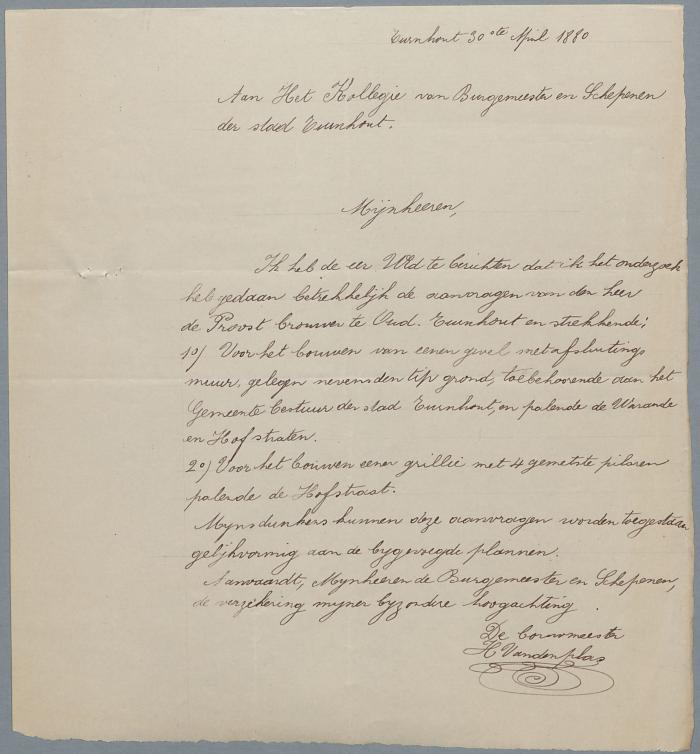 Turnhout 30ste April 1880
Aan Het Kollegie van Burgemeester en Schepenen
der stad Turnhout.
Mijnheeren,
Ik heb de eer UEd te berichten dat ik het onderzoek
heb gedaan betrekkelijk de aanvragen van den heer
de Proost brouwer te Oud. Turnhout en strekkende;
1o) Voor het bouwen van eenen gevel met afsluitings
muur, gelegen nevens den tip grond, toebehoorende aan het
Gemeente bestuur der stad Turnhout, en palende de Warande
en Hofstraten.
2o) Voor het bouwen eener grillie met 4 gemetste pilaren
palende de Hofstraat.
Mynsdunkens kunnen deze aanvragen worden toegestaan
gelijkvormig aan de bygevoegde plannen.
Aanvaardt, Mynheeren de Burgemeester en Schepenen,
de verzekering myner byzondere hoogachting.
De bouwmeester
H Vandenplas